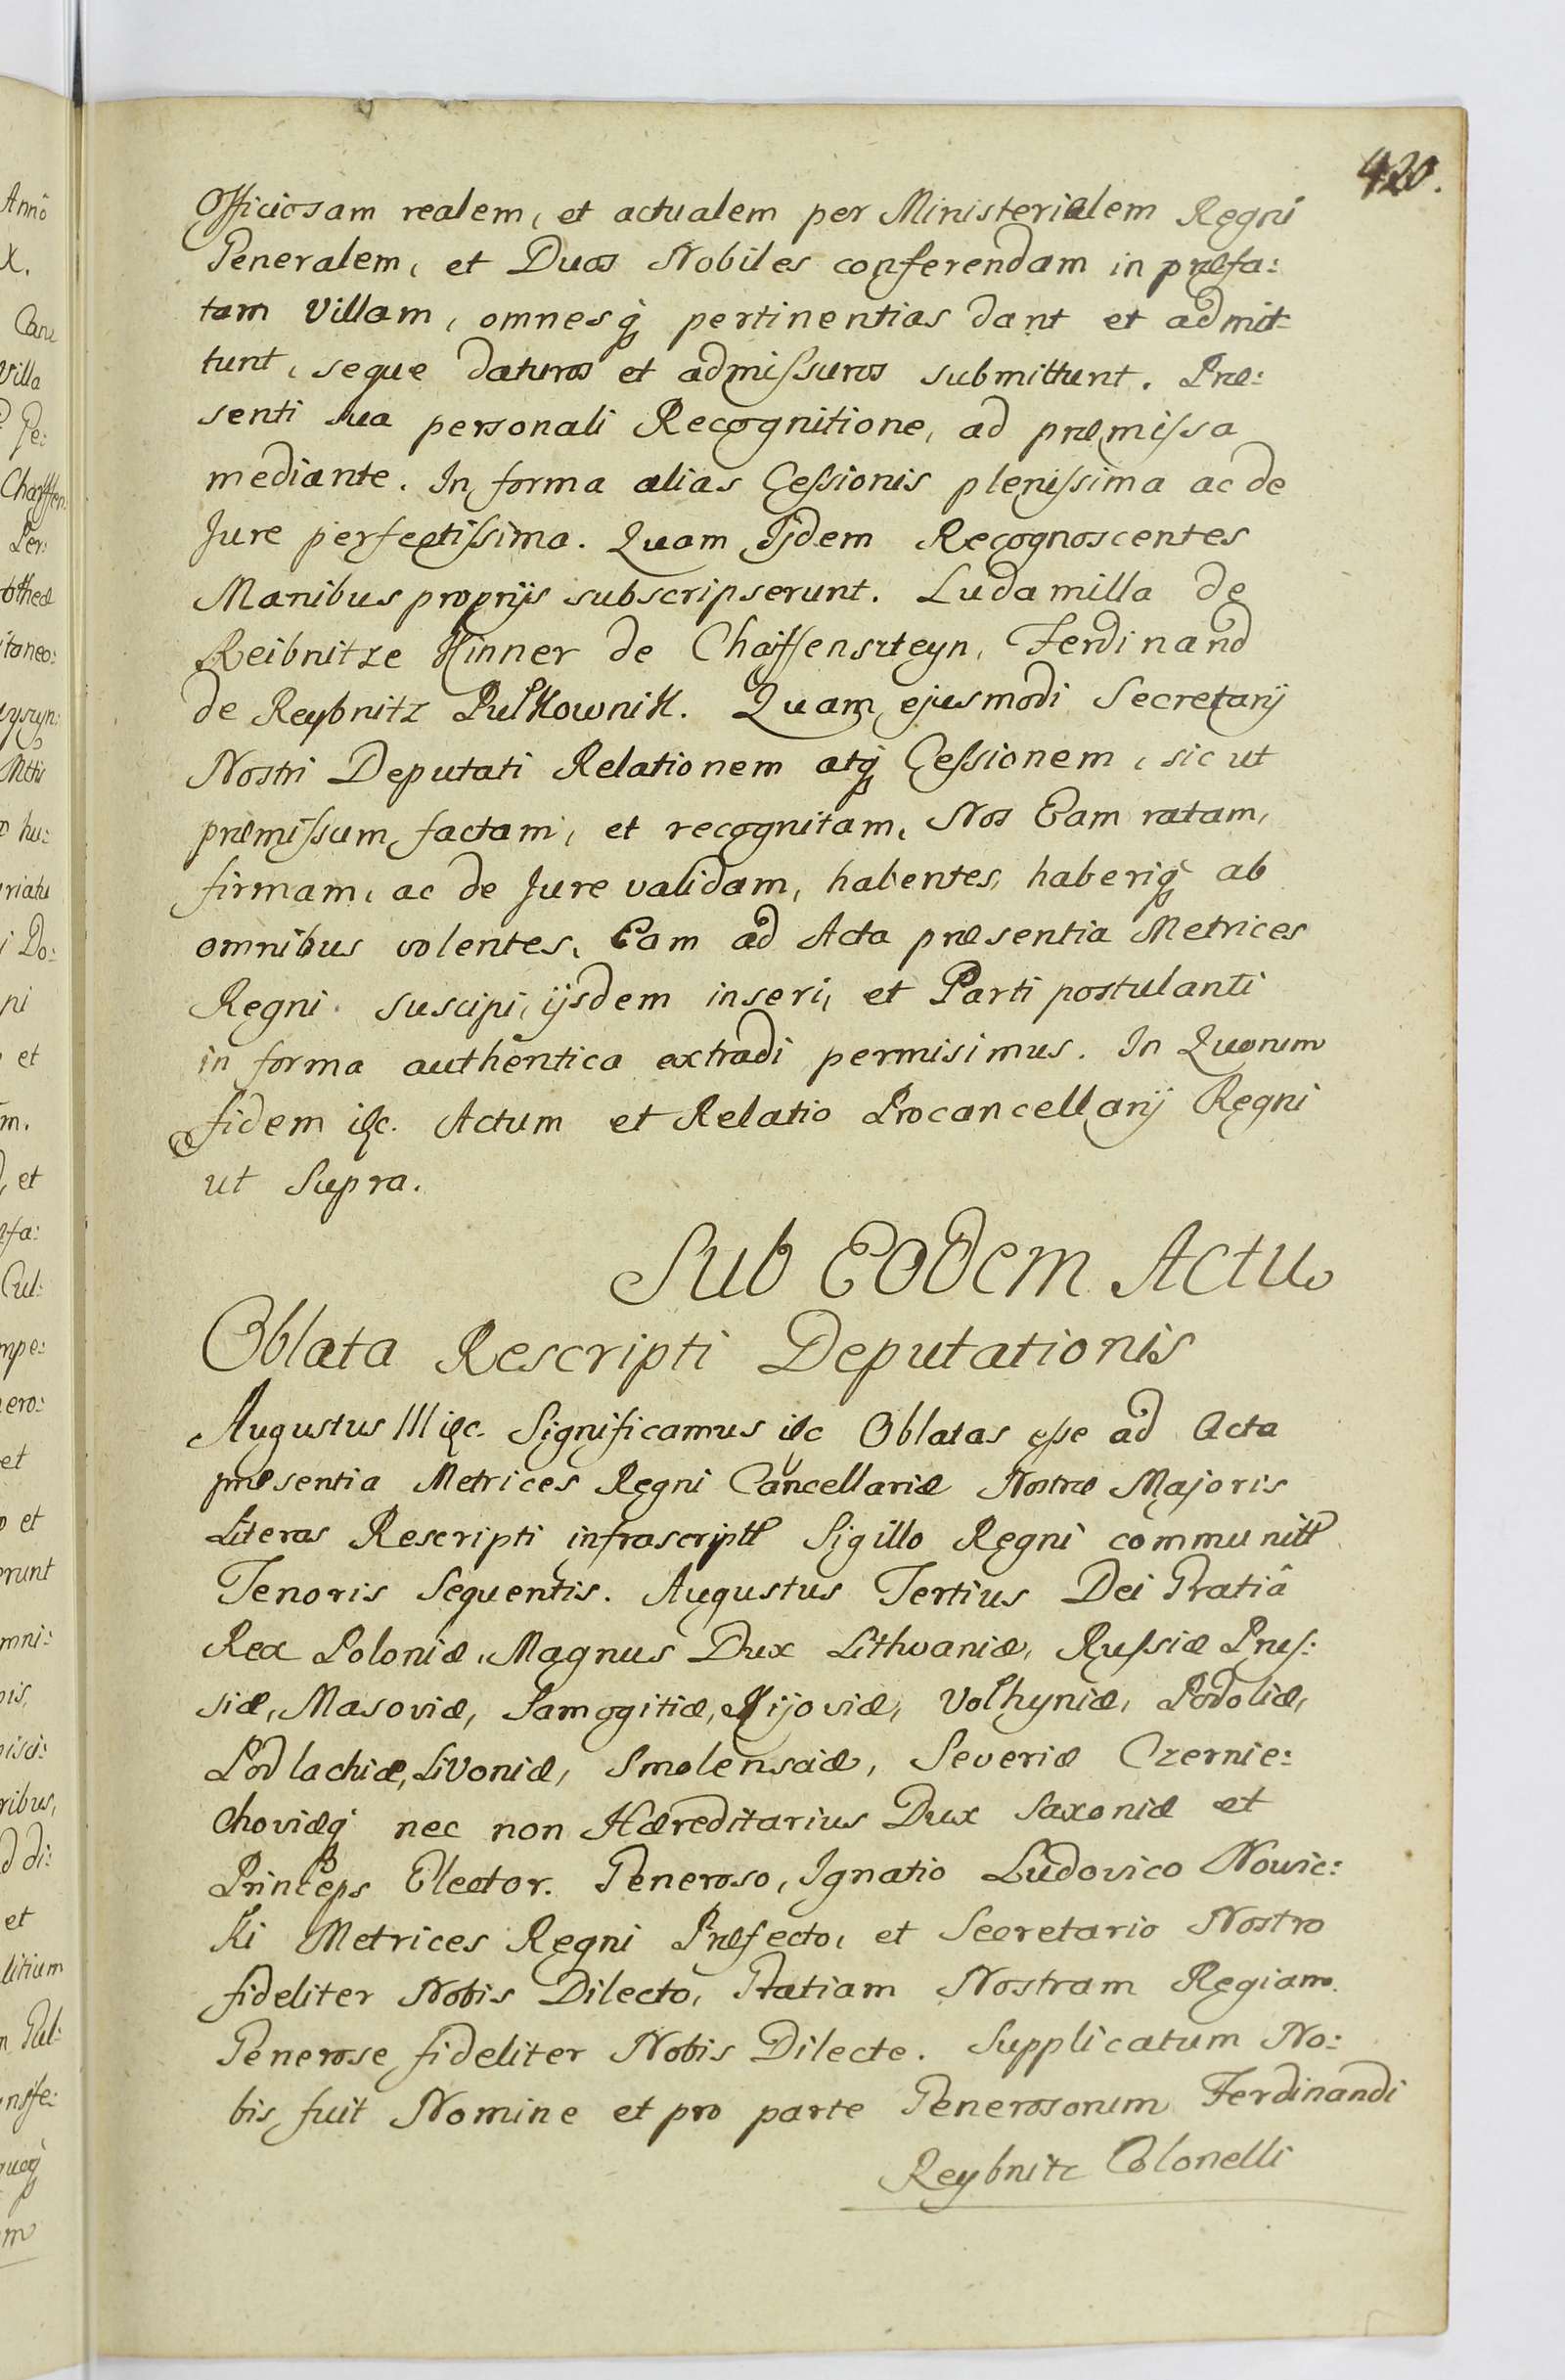 420.
Officiosam realem, et actualem per Ministerialem Regni
Generalem, et Duos Nobiles conferendam in præfa:
tam Villam, omnesq́ pertinentias dant et admit:
tunt, seque daturos et admiſsuros submittunt. Præ:
senti sua personali Recognitione, ad præmiſsa
mediante. In forma alias Ceſsionis pleniſsima ac de
Jure perfectiſsima. Quam Ijdem Recognoscentes
Manibus proprijs subscripserunt. Ludamilla de
Reibnitze Hinner de Chaffensrteyn, Ferdinand
de Reybnitz Pułkownik. Quam ejusmodi Secretarij
Nostri Deputati Relationem atq́ Ceſsionem, sic ut
præmiſsum factam, et recognitam, Nos Eam ratam,
firmam, ac de Jure validam, habentes, haberiq́ ab
omnibus volentes, Eam ad Acta præsentia Metrices
Regni suscipi, ijsdem inseri, et Parti postulanti
in forma authentica extradi permisimus. In Quorum
fidem &c. Actum et Relatio Procancellarij Regni
ut Supra.
Sub Eodem Actu
Oblata Rescripti Deputationis
Augustus III &c. Significamus &c Oblatas eſse ad Acta
præsentia Metrices Regni Cancellariæ Nostræ Majoris
Literas Rescripti infrascriptt Sigillo Regni communitt
Tenoris Sequentis. Augustus Tertius Dei Gratiâ
Rex Poloniæ, Magnus Dux Lithvaniæ, Ruſsiæ Pruſ:
siæ, Masoviæ, Samogitiæ, Kijoviæ, Volhyniæ, Podoliæ,
Podlachiæ, Livoniæ, Smolensciæ, Severiæ Czernie:
choviæq́ nec non Hæreditarius Dux Saxoniæ et
Princeps Elector. Generoso, Ignatio Ludovico Nowic:
ki Metrices Regni Præfecto, et Secretario Nostro
fideliter Nobis Dilecto, Gratiam Nostram Regiam.
Generose fideliter Nobis Dilecte. Supplicatum No:
bis fuit Nomine et pro parte Generosorum Ferdinandi
Reybnitz Colonelli